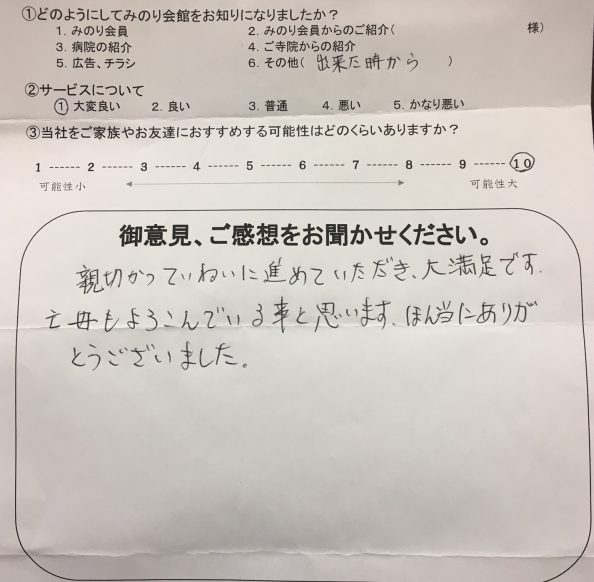 ①どのようにしてみのり会館をお知りになりましたか？
1. みのり会員 2. みのり会員からのご紹介( 様)
3. 病院の紹介 4. ご寺院からの紹介
5. 広告、チラシ 6. その他( 出来た時から )
②サービスについて
1 大変良い 2. 良い 3. 普通 4. 悪い 5. かなり悪い
③当社をご家族やお友達におすすめする可能性はどのくらいありますか？
1 ------ 2 ------ 3 ------ 4 ------ 5 ------ 6 ------ 7 ------ 8 ------ 9 ------ 10
可能性小 可能性大
御意見、ご感想をお聞かせください。
親切かつていねいに進めていただき、大満足です.
亡母もよろこんでいる事と思います、ほん当にありが
とうございました。